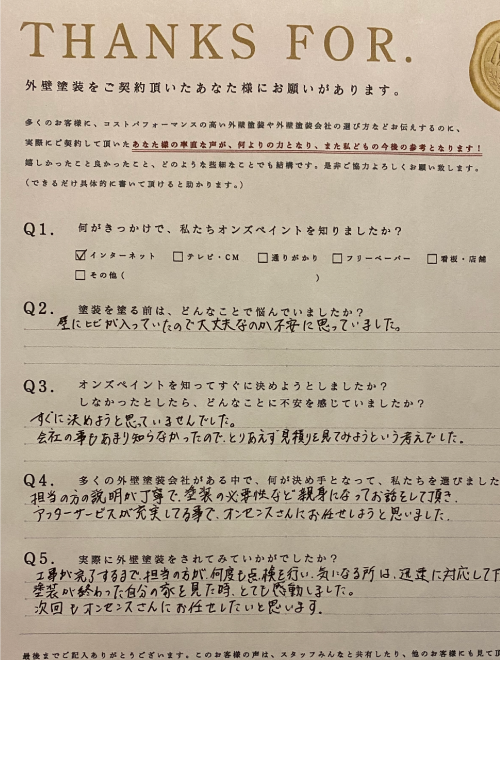 THANKS FOR.
外壁塗装をご契約頂いたあなた様にお願いがあります。
多くのお客様に、コストパフォーマンスの高い外壁塗装や外壁塗装会社の選び方などお伝えするのに、
実際にご契約して頂いたあなた様の率直な声が、何よりの力となり、また私どもの今後の参考となります!
嬉しかったこと良かったこと、どのような些細なことでも結構です。是非ご協力よろしくお願い致します。
(できるだけ具体的に書いて頂けると助かります。)
Q1. 何がきっかけで、私たちオンズペイントを知りましたか?
☑インターネット □テレビ・CM □通りがかり □フリーペーパー □看板・店舗
□その他( )
Q2. 塗装を塗る前は、どんなことで悩んでいましたか?
壁にヒビが入っていたので大丈夫なのか不安に思っていました。
Q3. オンズペイントを知ってすぐに決めようとしましたか?
しなかったとしたら、どんなことに不安を感じていましたか?
すぐに決めようと思っていませんでした。
会社の事もあまり知らなかったので、とりあえず見積りを見てみようという考えでした。
Q4. 多くの外壁塗装会社がある中で、何が決め手となって、私たちを選びました
担当の方の説明が丁寧で、塗装の必要性など親身になってお話をして頂き、
アフターサービスが充実してる事で、オンセンスさんにお任せしようと思いました。
Q5. 実際に外壁塗装をされてみていかがでしたか?
工事が完了するまで、担当の方が、何度も点検を行い、気になる所は、迅速に対応して下
塗装が終わった自分の家を見た時、とても感動しました。
次回もオンセンスさんにお任せしたいと思います。
最後までご記入ありがとうございます。このお客様の声は、スタッフみんなと共有したり、他のお客様にも見て頂